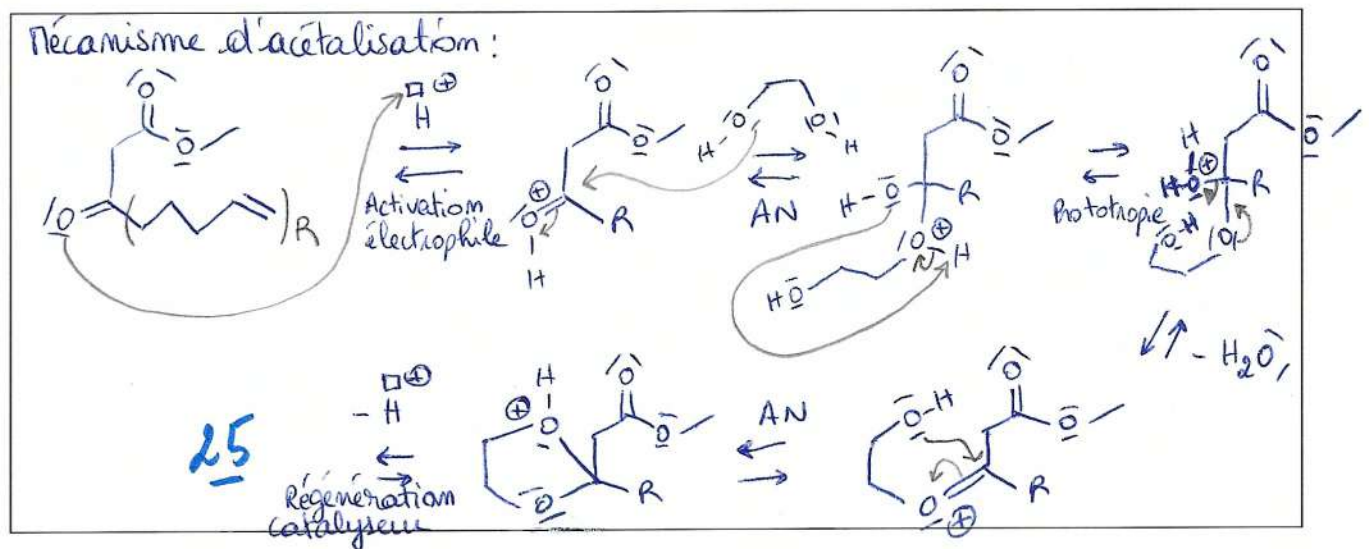 Mécanisme d'acétalisation :
O
O
O
R
□ ⊕
H
Activation
électrophile
O
O
⊕
O
H
R
H O O H
AN
O
O
H-O
R
O ⊕
H
HO
Prototropie
O
O
H
H-O ⊕
R
O-H
O
- H₂O
O-H
O
O
O
⊕
R
AN
H
⊕ O
O
O
O
R
□ ⊕
- H
Régénération
catalyseur
25